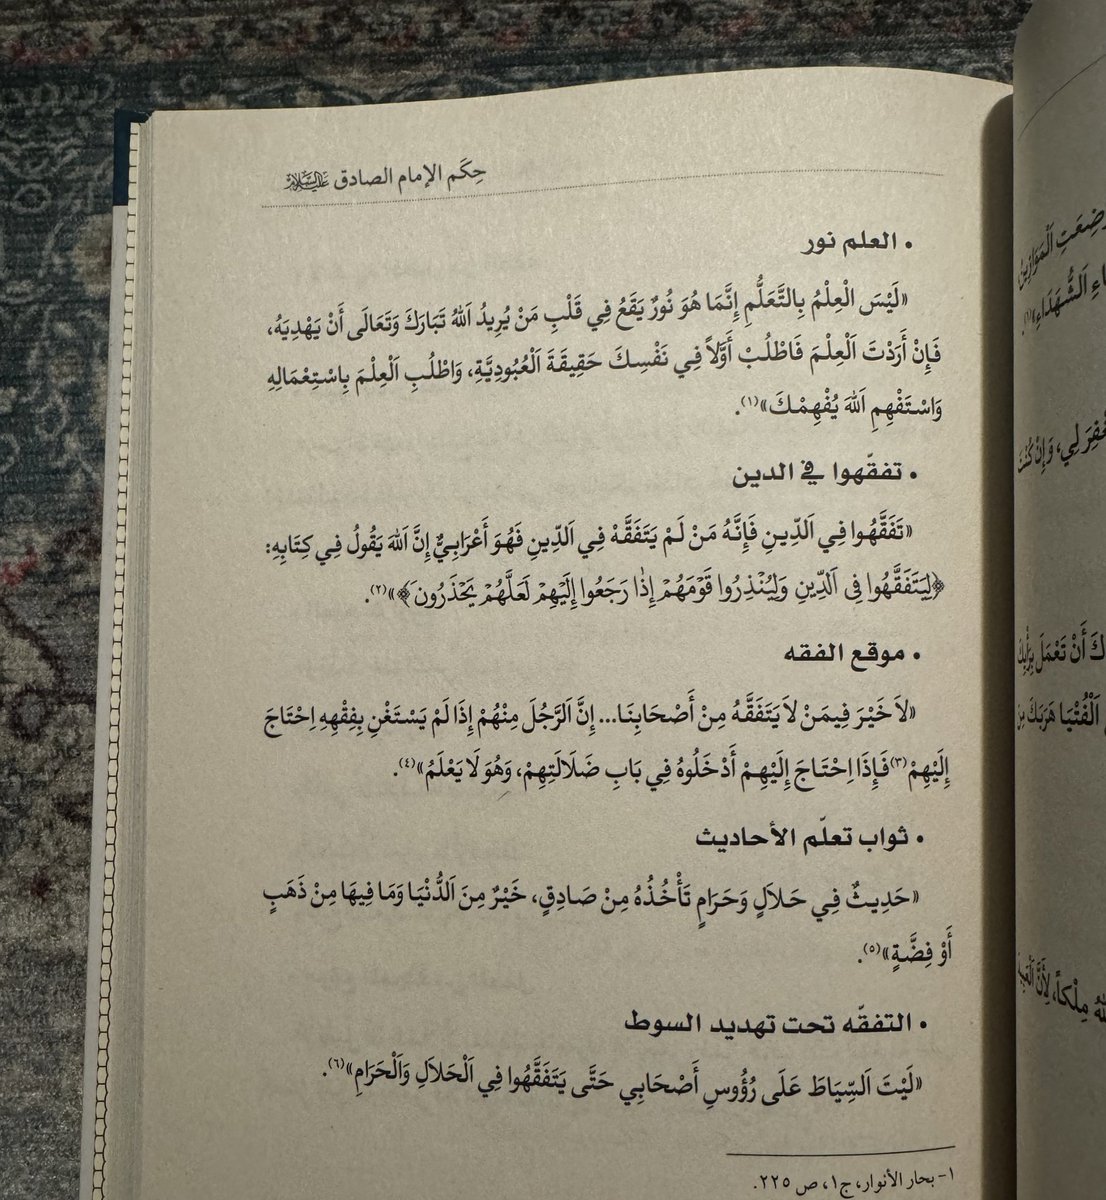 حِكَم الإمام الصادق عليه السلام
• العلم نور
«لَيْسَ الْعِلْمُ بِالتَّعَلُّمِ إِنَّمَا هُوَ نُورٌ يَقَعُ فِي قَلْبِ مَنْ يُرِيدُ اَللهُ تَبَارَكَ وَتَعَالَى أَنْ يَهْدِيَهُ،
فَإِنْ أَرَدْتَ اَلْعِلْمَ فَاطْلُبْ أَوَّلاً فِي نَفْسِكَ حَقِيقَةَ اَلْعُبُودِيَّةِ، وَاطْلُبِ اَلْعِلْمَ بِاسْتِعْمَالِهِ
وَاسْتَفْهِمِ اَللهَ يُفْهِمْكَ»(١).
• تفقّهوا في الدين
«تَفَقَّهُوا فِي اَلدِّينِ فَإِنَّهُ مَنْ لَمْ يَتَفَقَّهْ فِي اَلدِّينِ فَهُوَ أَعْرَابِيٌّ إِنَّ اَللهَ يَقُولُ فِي كِتَابِهِ:
﴿لِيَتَفَقَّهُوا فِى اَلدِّينِ وَلِيُنْذِرُوا قَوْمَهُمْ إِذَا رَجَعُوا إِلَيْهِمْ لَعَلَّهُمْ يَحْذَرُونَ﴾»(٢).
• موقع الفقه
«لاَ خَيْرَ فِيمَنْ لاَ يَتَفَقَّهُ مِنْ أَصْحَابِنَا... إِنَّ اَلرَّجُلَ مِنْهُمْ إِذَا لَمْ يَسْتَغْنِ بِفِقْهِهِ اِحْتَاجَ
إِلَيْهِمْ(٣) فَإِذَا اِحْتَاجَ إِلَيْهِمْ أَدْخَلُوهُ فِي بَابِ ضَلَالَتِهِمْ، وَهُوَ لَا يَعْلَمُ»(٤).
• ثواب تعلّم الأحاديث
«حَدِيثٌ فِي حَلاَلٍ وَحَرَامٍ تَأْخُذُهُ مِنْ صَادِقٍ، خَيْرٌ مِنَ اَلدُّنْيَا وَمَا فِيهَا مِنْ ذَهَبٍ
أَوْ فِضَّةٍ»(٥).
• التفقّه تحت تهديد السوط
«لَيْتَ اَلسِّيَاطَ عَلَى رُؤُوسِ أَصْحَابِي حَتَّى يَتَفَقَّهُوا فِي اَلْحَلاَلِ وَاَلْحَرَامِ»(٦).
١- بحار الأنوار، ج١، ص ٢٢٥.
وُضِعَتِ اَلْمَوَازِينُ
اَلشُّهَدَاءِ»(١).
لِي، وَإِنْ كُنْتَ
أَنْ تَعْمَلَ بِرَأْيِكَ
اَلْفُتْيَا هَرَبَكَ مِنَ
مِلْكاً، لِأَنَّ